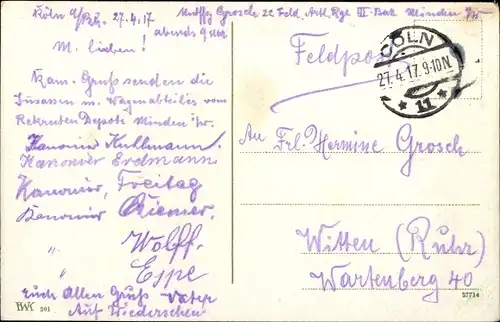 Köln a/Rh. 27.4.17
abends 9 Uhr
Grosch 22 Feld Artl. Rgt III Bat Minden i/W
M. lieben!
Kam. Gruß senden die
Insassen m. Wagenabteiles vom
Rekruten Depot Minden i/w.
Kanonier Kuhlmann.
Kanonier Erdmann
Kanonier, Freitag
Kanonier Riemer.
" Wolff.
" Eppe
Euch Allen Gruß Vater
Auf Wiedersehen
Feldpost
CÖLN
27.4.17.9-10N.
* 11 *
An Frl. Hermine Grosch
Witten (Ruhr)
Wartenberg 40
201
37714